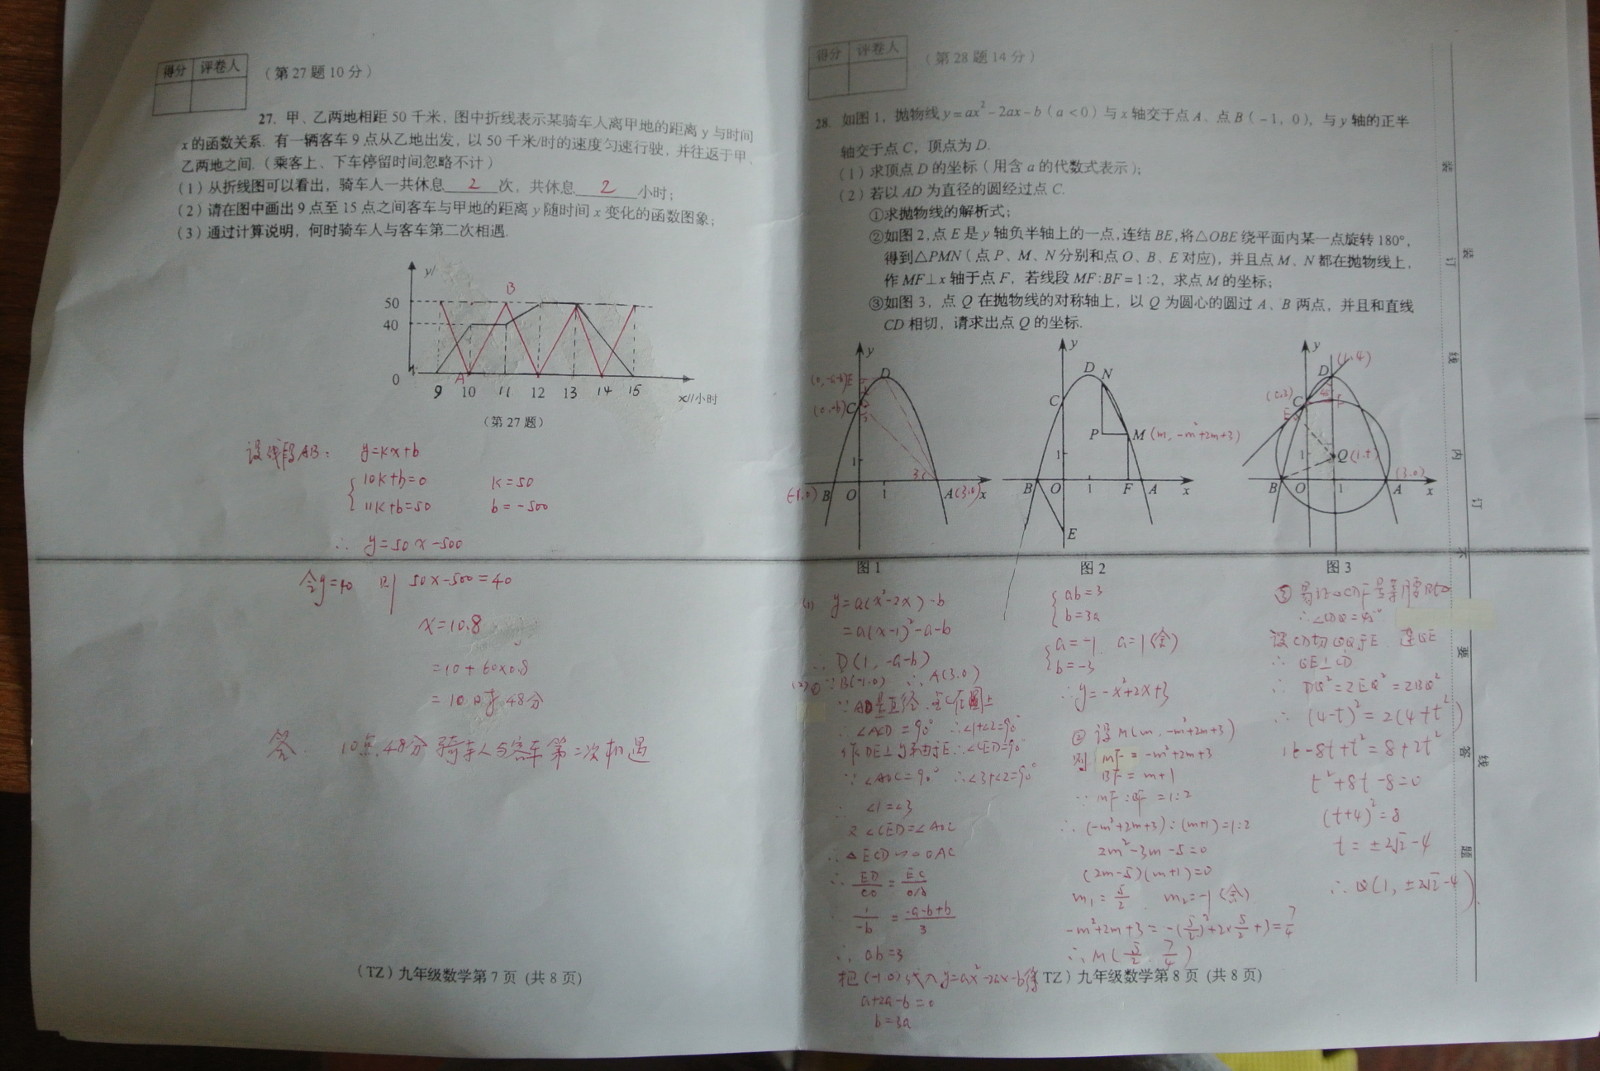 得分 评卷人
（第27题10分）
27. 甲、乙两地相距50千米，图中折线表示某骑车人离甲地的距离y与时间
x的函数关系. 有一辆客车9点从乙地出发，以50千米/时的速度匀速行驶，并往返于甲、
乙两地之间.（乘客上、下车停留时间忽略不计）
(1)从折线图可以看出，骑车人一共休息 2 次，共休息 2 小时；
(2)请在图中画出9点至15点之间客车与甲地的距离y随时间x变化的函数图象；
(3)通过计算说明，何时骑车人与客车第二次相遇.
y/
B
50
40
0
A
9 10 11 12 13 14 15
x/小时
（第27题）
设线段AB： y=kx+b
10k+b=0 k=50
11k+b=50 b=-500
∴ y=50x-500
令y=40 则 50x-500=40
x=10.8
=10+60×0.8
=10时48分
答 10点48分骑车人与客车第二次相遇
（TZ）九年级数学第7页（共8页）
得分 评卷人
（第28题14分）
28. 如图1，抛物线y=ax²-2ax-b（a<0）与x轴交于点A、点B（-1，0），与y轴的正半
轴交于点C，顶点为D.
(1)求顶点D的坐标（用含a的代数式表示）；
(2)若以AD为直径的圆经过点C.
①求抛物线的解析式；
②如图2，点E是y轴负半轴上的一点，连结BE，将△OBE绕平面内某一点旋转180°，
得到△PMN（点P、M、N分别和点O、B、E对应），并且点M、N都在抛物线上，
作MF⊥x轴于点F，若线段MF:BF=1:2，求点M的坐标；
③如图3，点Q在抛物线的对称轴上，以Q为圆心的圆过A、B两点，并且和直线
CD相切，请求出点Q的坐标.
y
D
C
1
(-1,0) B O 1 A(3,0) x
图1
y
D N
C
P M (m, -m²+2m+3)
1
B O 1 F A x
E
图2
y
D (1,4)
C
E
1
Q(1,t)
(3,0)
B O 1 A x
图3
(1) y=a(x²-2x)-b
=a(x-1)²-a-b
∴ D(1, -a-b)
(2)① ∵B(-1,0) ∴A(3,0)
∵AD是直径，点C在圆上
∴∠ACD=90° ∴∠1+∠2=90°
作DE⊥y轴于E ∴∠CED=90°
∵∠AOC=90° ∴∠3+∠2=90°
∴ ∠1=∠3
又∠CED=∠AOC
∴△ECD∽△OAC
∴ ED/CO = EC/OA
1/-b = -a-b+b/3
∴ ab=3
把(-1,0)代入y=ax²-2ax-b得
a+2a-b=0
b=3a
ab=3
b=3a
a=-1 a=1(舍)
b=-3
∴y=-x²+2x+3
② 设M(m, -m²+2m+3)
则 MF=-m²+2m+3
BF=m+1
∵MF:BF=1:2
∴(-m²+2m+3):(m+1)=1:2
2m²-3m-5=0
(2m-5)(m+1)=0
m₁=5/2 m₂=-1(舍)
-m²+2m+3=-(5/2)²+2×5/2+3=7/4
∴M(5/2, 7/4)
设CD切⊙Q于E 连QE
∴ QE⊥CD
∴ DQ²=2EQ²=2BQ²
∴ (4-t)²=2(4+t²)
16-8t+t²=8+2t²
t²+8t-8=0
(t+4)²=8
t=±2√2-4
∴Q(1, ±2√2-4)
TZ）九年级数学第8页（共8页）
装 订 线 内 不 要 答 题
装 订 线